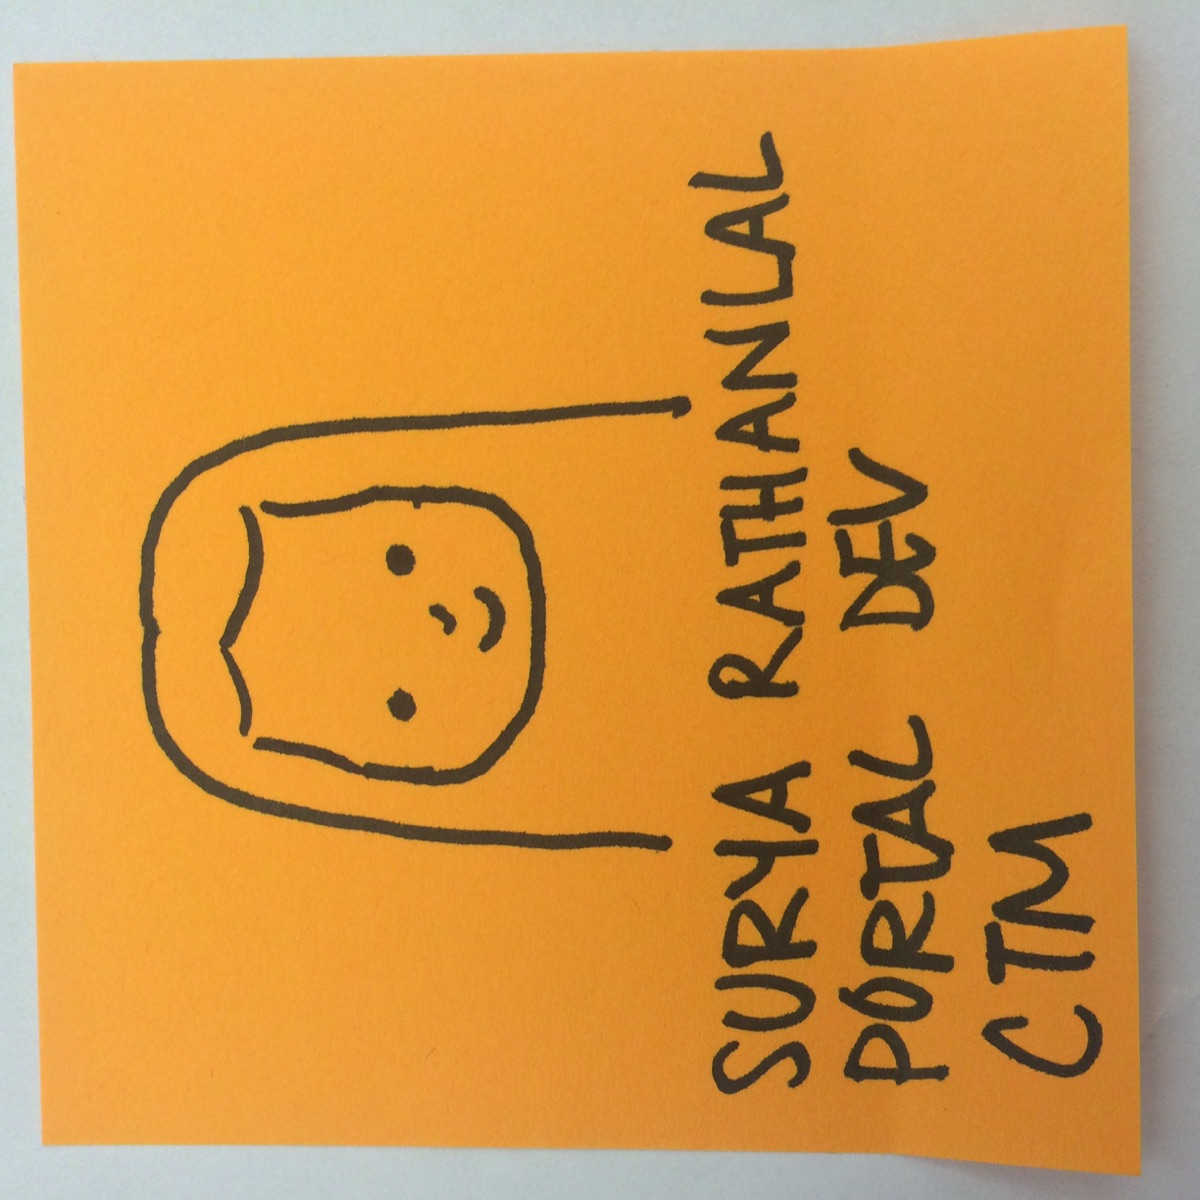 SURYA RATHANLAL
PORTAL DEV
CTM